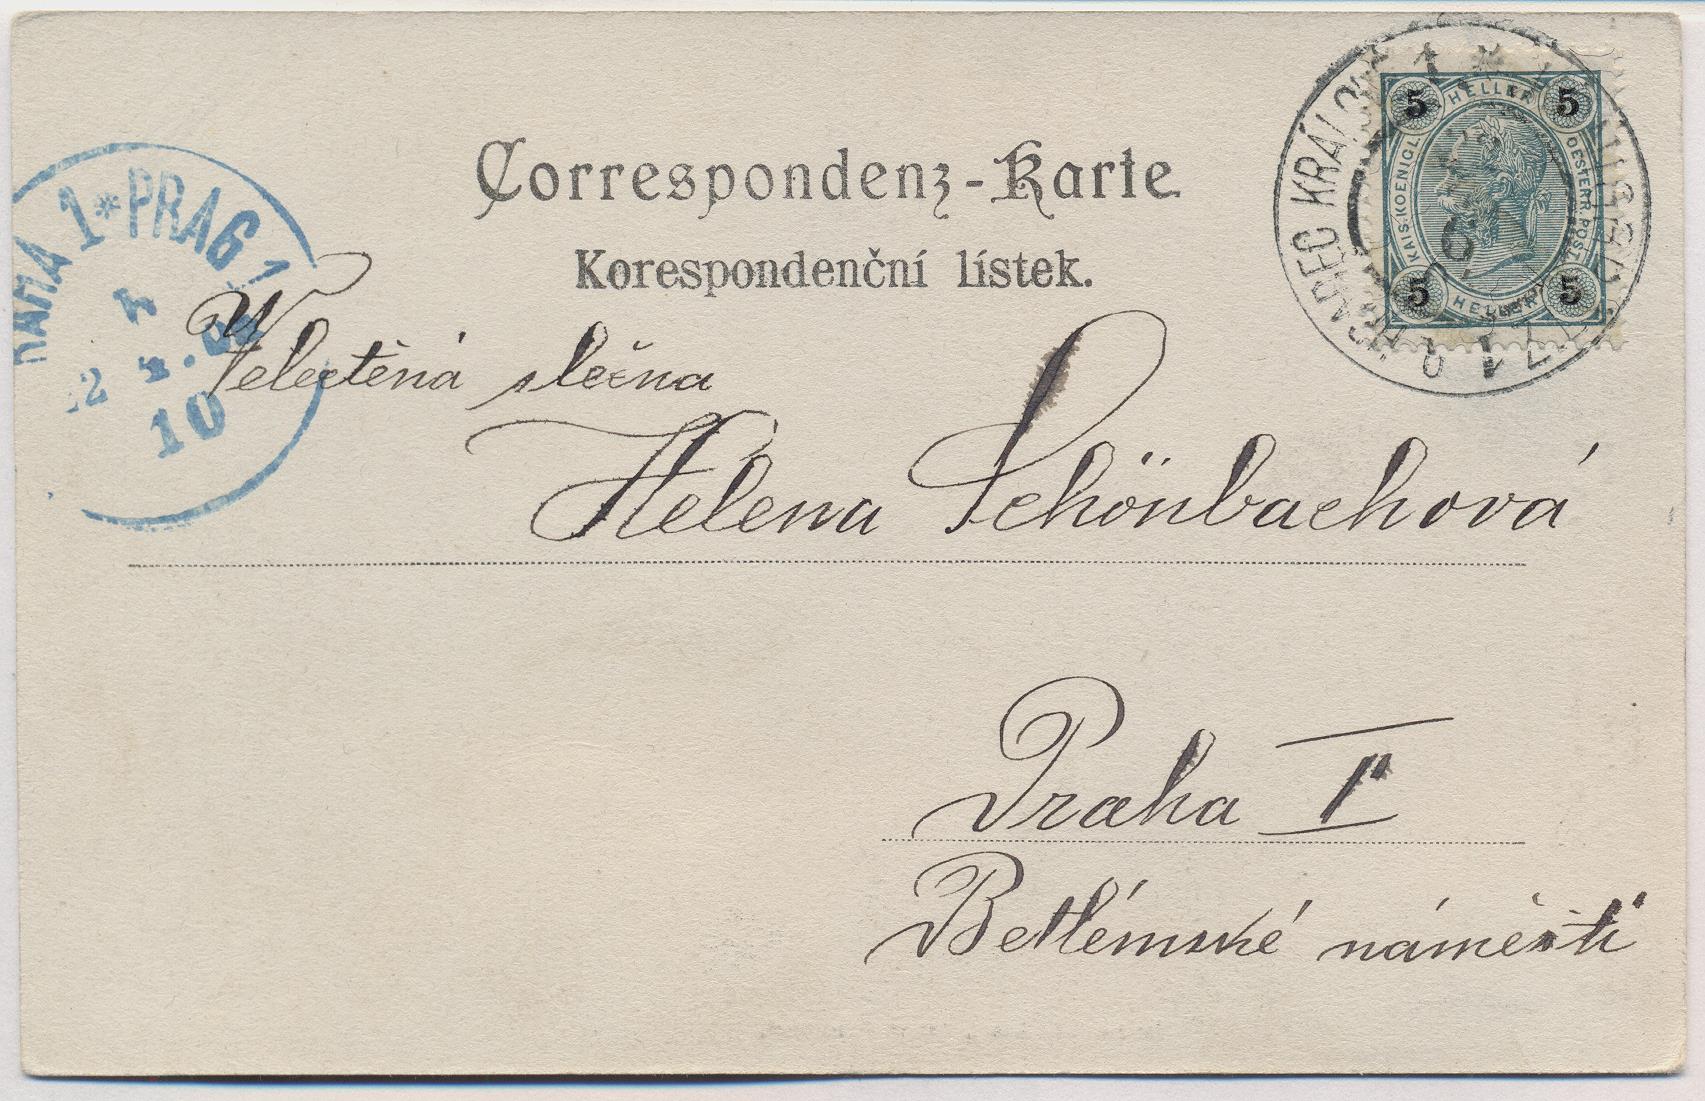 Correspondenz-Karte
Korespondenční lístek.
HRADEC KRÁLOVÉ 1
5 HELLER 5
KAIS. KOENIGL. OESTERR. POST
5 HELLER 5
1 * PRAG 1
10
Velectěná slečna
Helena Schönbachová
Praha I
Betlémské náměstí